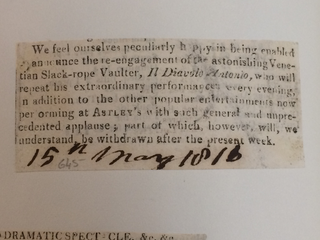 We feel ourselves peculiarly happy in being enabled
announce the re-engagement of the astonishing Vene-
tian Slack-rope Vaulter, Il Diavolo Antonio, who will
repeat his extraordinary performances every evening,
in addition to the other popular entertainments now
performing at ASTLEY's with such general and unpre-
cedented applause; part of which, however, will, we
understand, be withdrawn after the present week.
15th May 1816
645
DRAMATIC SPECTACLE, &c. &c.